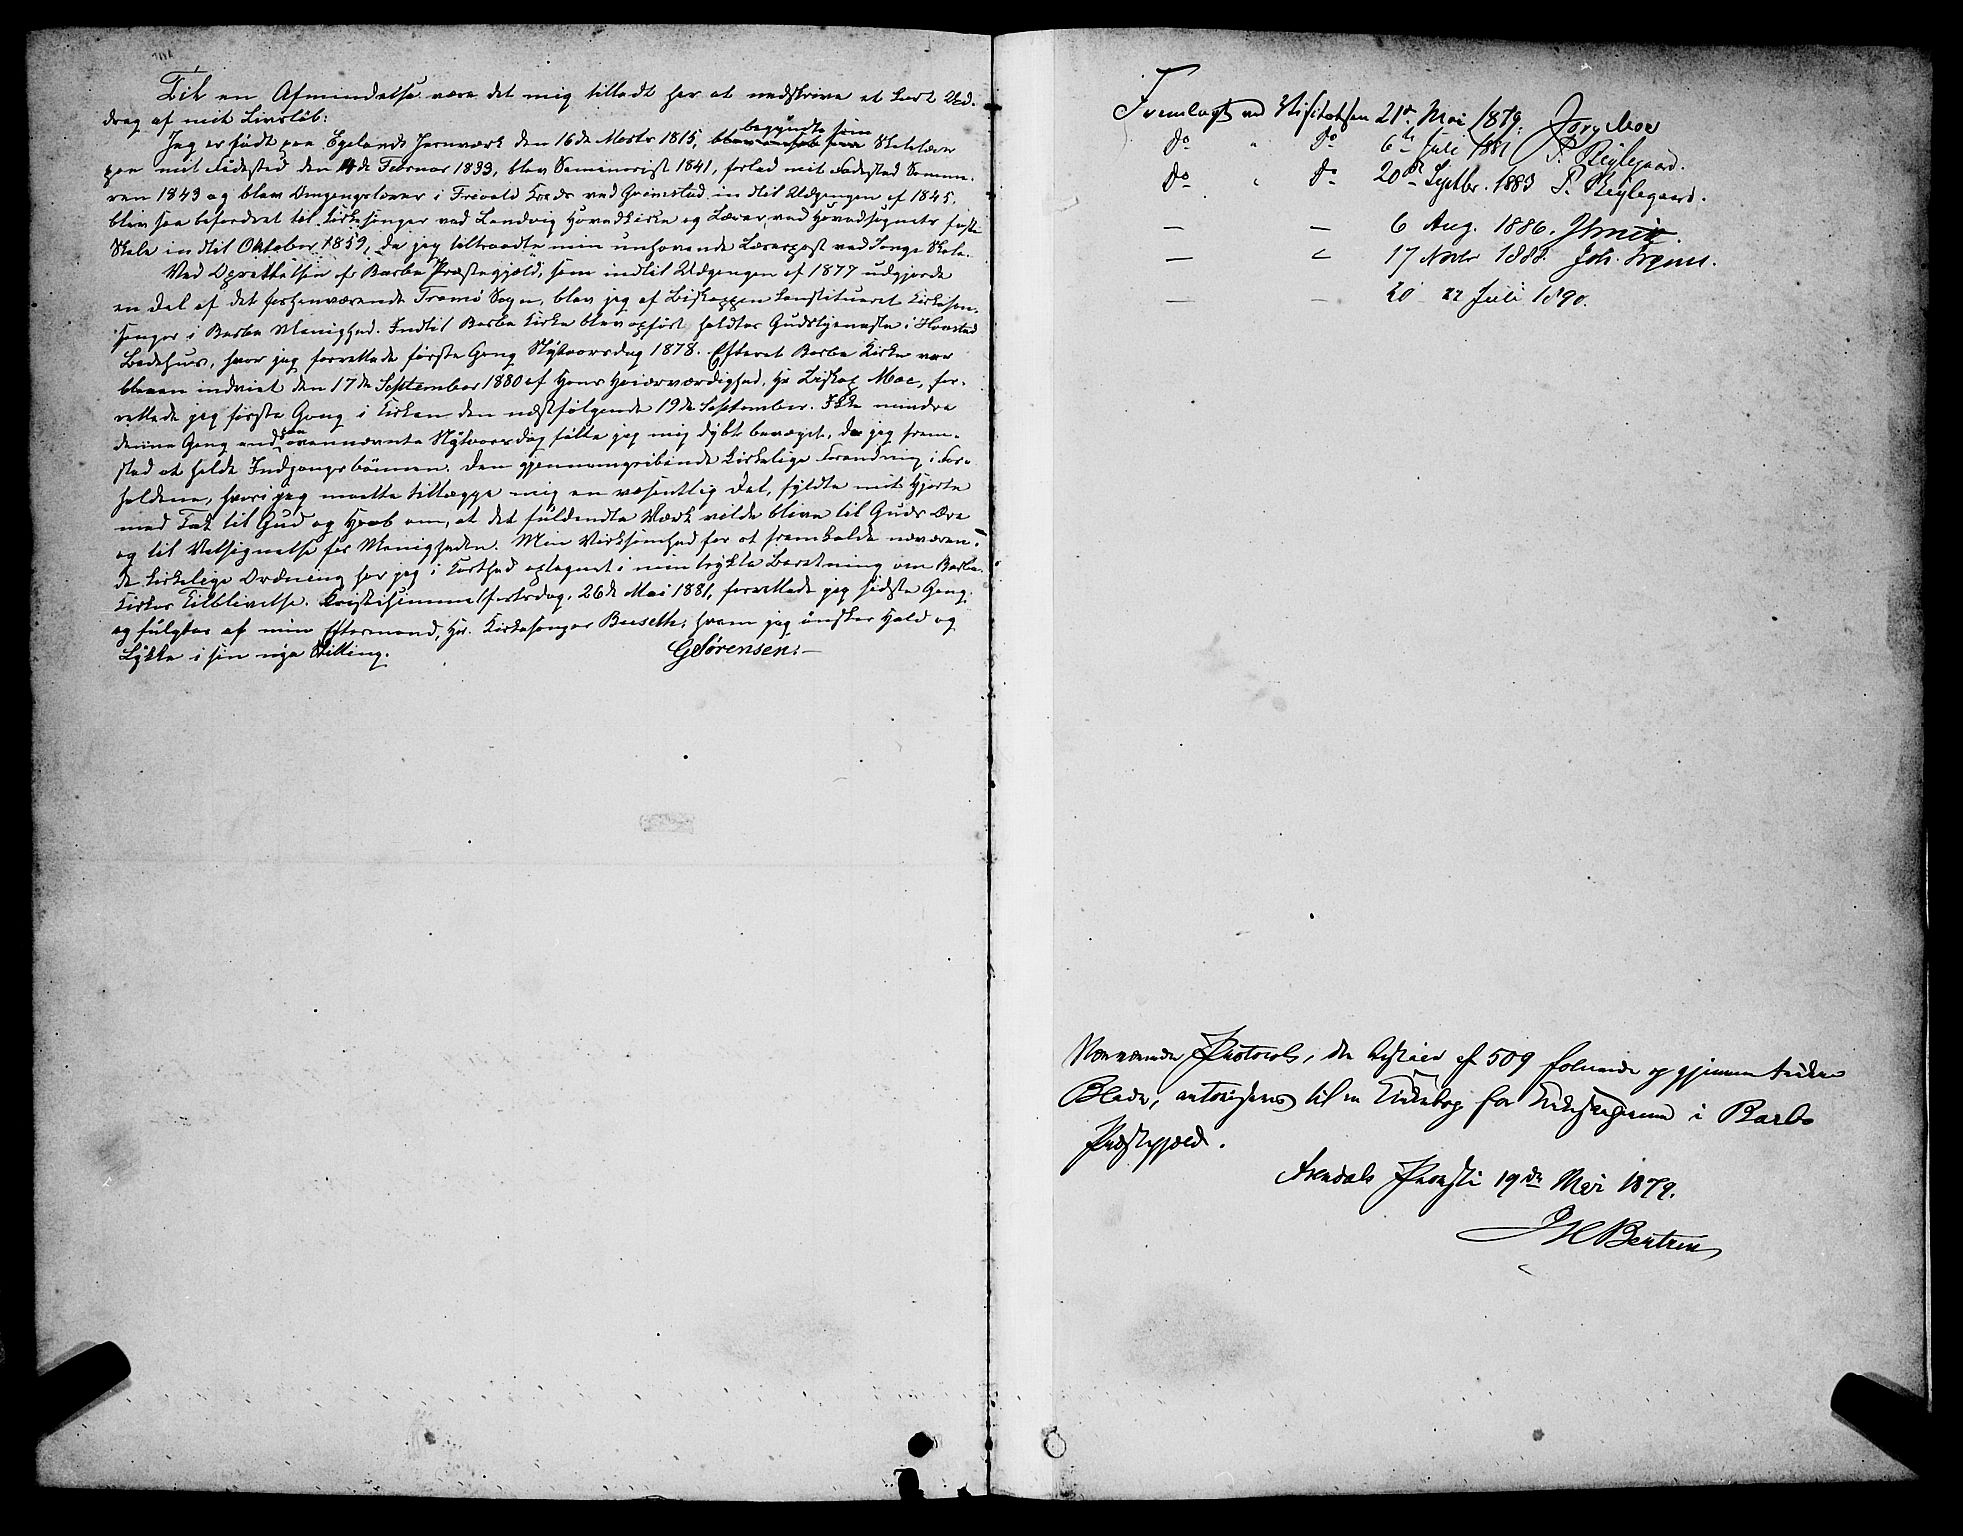 Til en Afmindelse være det mig tilladt her at nedskrive et kort Ud-
drag af mit Livsløb:
Jeg er født paa Egelands Jernværk den 16de Marts 1815, begyndte som Skolelærer
paa mit Fødested den 4de Februar 1833, blev Seminarist 1841, forlod mit Fødested Somme-
ren 1843 og blev Omgangslærer i Kreds ved Grimstad indtil Udgangen af 1845,
blev saa befordret til Kirkesanger ved Landvig Hovedkirke og Lærer ved Hovedsognets faste
Skole indtil Oktober 1859, da jeg tiltraadte min unhavende Lærerpost ved Songe Skole.
Ved Oprettelsen af Barbo Præstegjæld, som indtil Udgangen af 1877 udgjorde
en Del af det forhenværende Tromø Sogn, blev jeg af Biskoppen konstitueret Kirkesan-
sanger i Barbo Menighed. Indtil Barbo Kirke blev opført holdtes Gudstjeneste i Harstad
Bedehuus, hvor jeg forrettede første Gang Nytaarsdag 1878. Efterat Barbo Kirke var
bleven indviet den 17de September 1880 af Hans Høiærværdighed, Hr Biskop Moe, for-
rettede jeg første Gang i Kirken den næstfølgende 19de September. Ikke mindre
denne Gang end paa ovennævnte Nytaarsdag følte jeg mig dybt bevæget, da jeg frem-
stod at holde Indgangsbønnen. Den gjennemgribende kirkelige Forandring i For-
holdene, hvori jeg maatte tillægge mig en væsentlig Del, fyldte mit Hjerte
med Tak til Gud og Haab om, at det fuldendte Værk vilde blive til Guds Ære
og til Velsignelse for Menigheden. Min Virksomhed for at fremkalde nuværen-
de kirkelige Ordning har jeg i Korthed optegnet i min trykte Beretning om Barbo
Kirkes Tilblivelse. Kristihimmelfartsdag, 26de Mai 1881, forrettede jeg sidste Gang
og fulgtes af min Eftermand, Hr. Kirkesanger Buseth, hvem jeg ønsker Held og
Lykke i sin nye Stilling.
GSørensen.
Fremlagt ved Visitatsen 21de Mai 1879. Jørg Moe
do " do 6te Juli 1881 P. Reylegaard.
do " do 20de Septbr. 1883 P. Reylegaard.
— — 6 Aug. 1886.
— — 17 Novbr 1888. Joh.
— — 20 22 Juli 1890.
Nærværende Protocol, der bestaaer af 509 folierede og gjennemtrukne
Blade, autoriseres til en Kirkebog for Kirkesangeren i Barbo
Præstegjæld.
Arendals Provsti 19de Mai 1879.